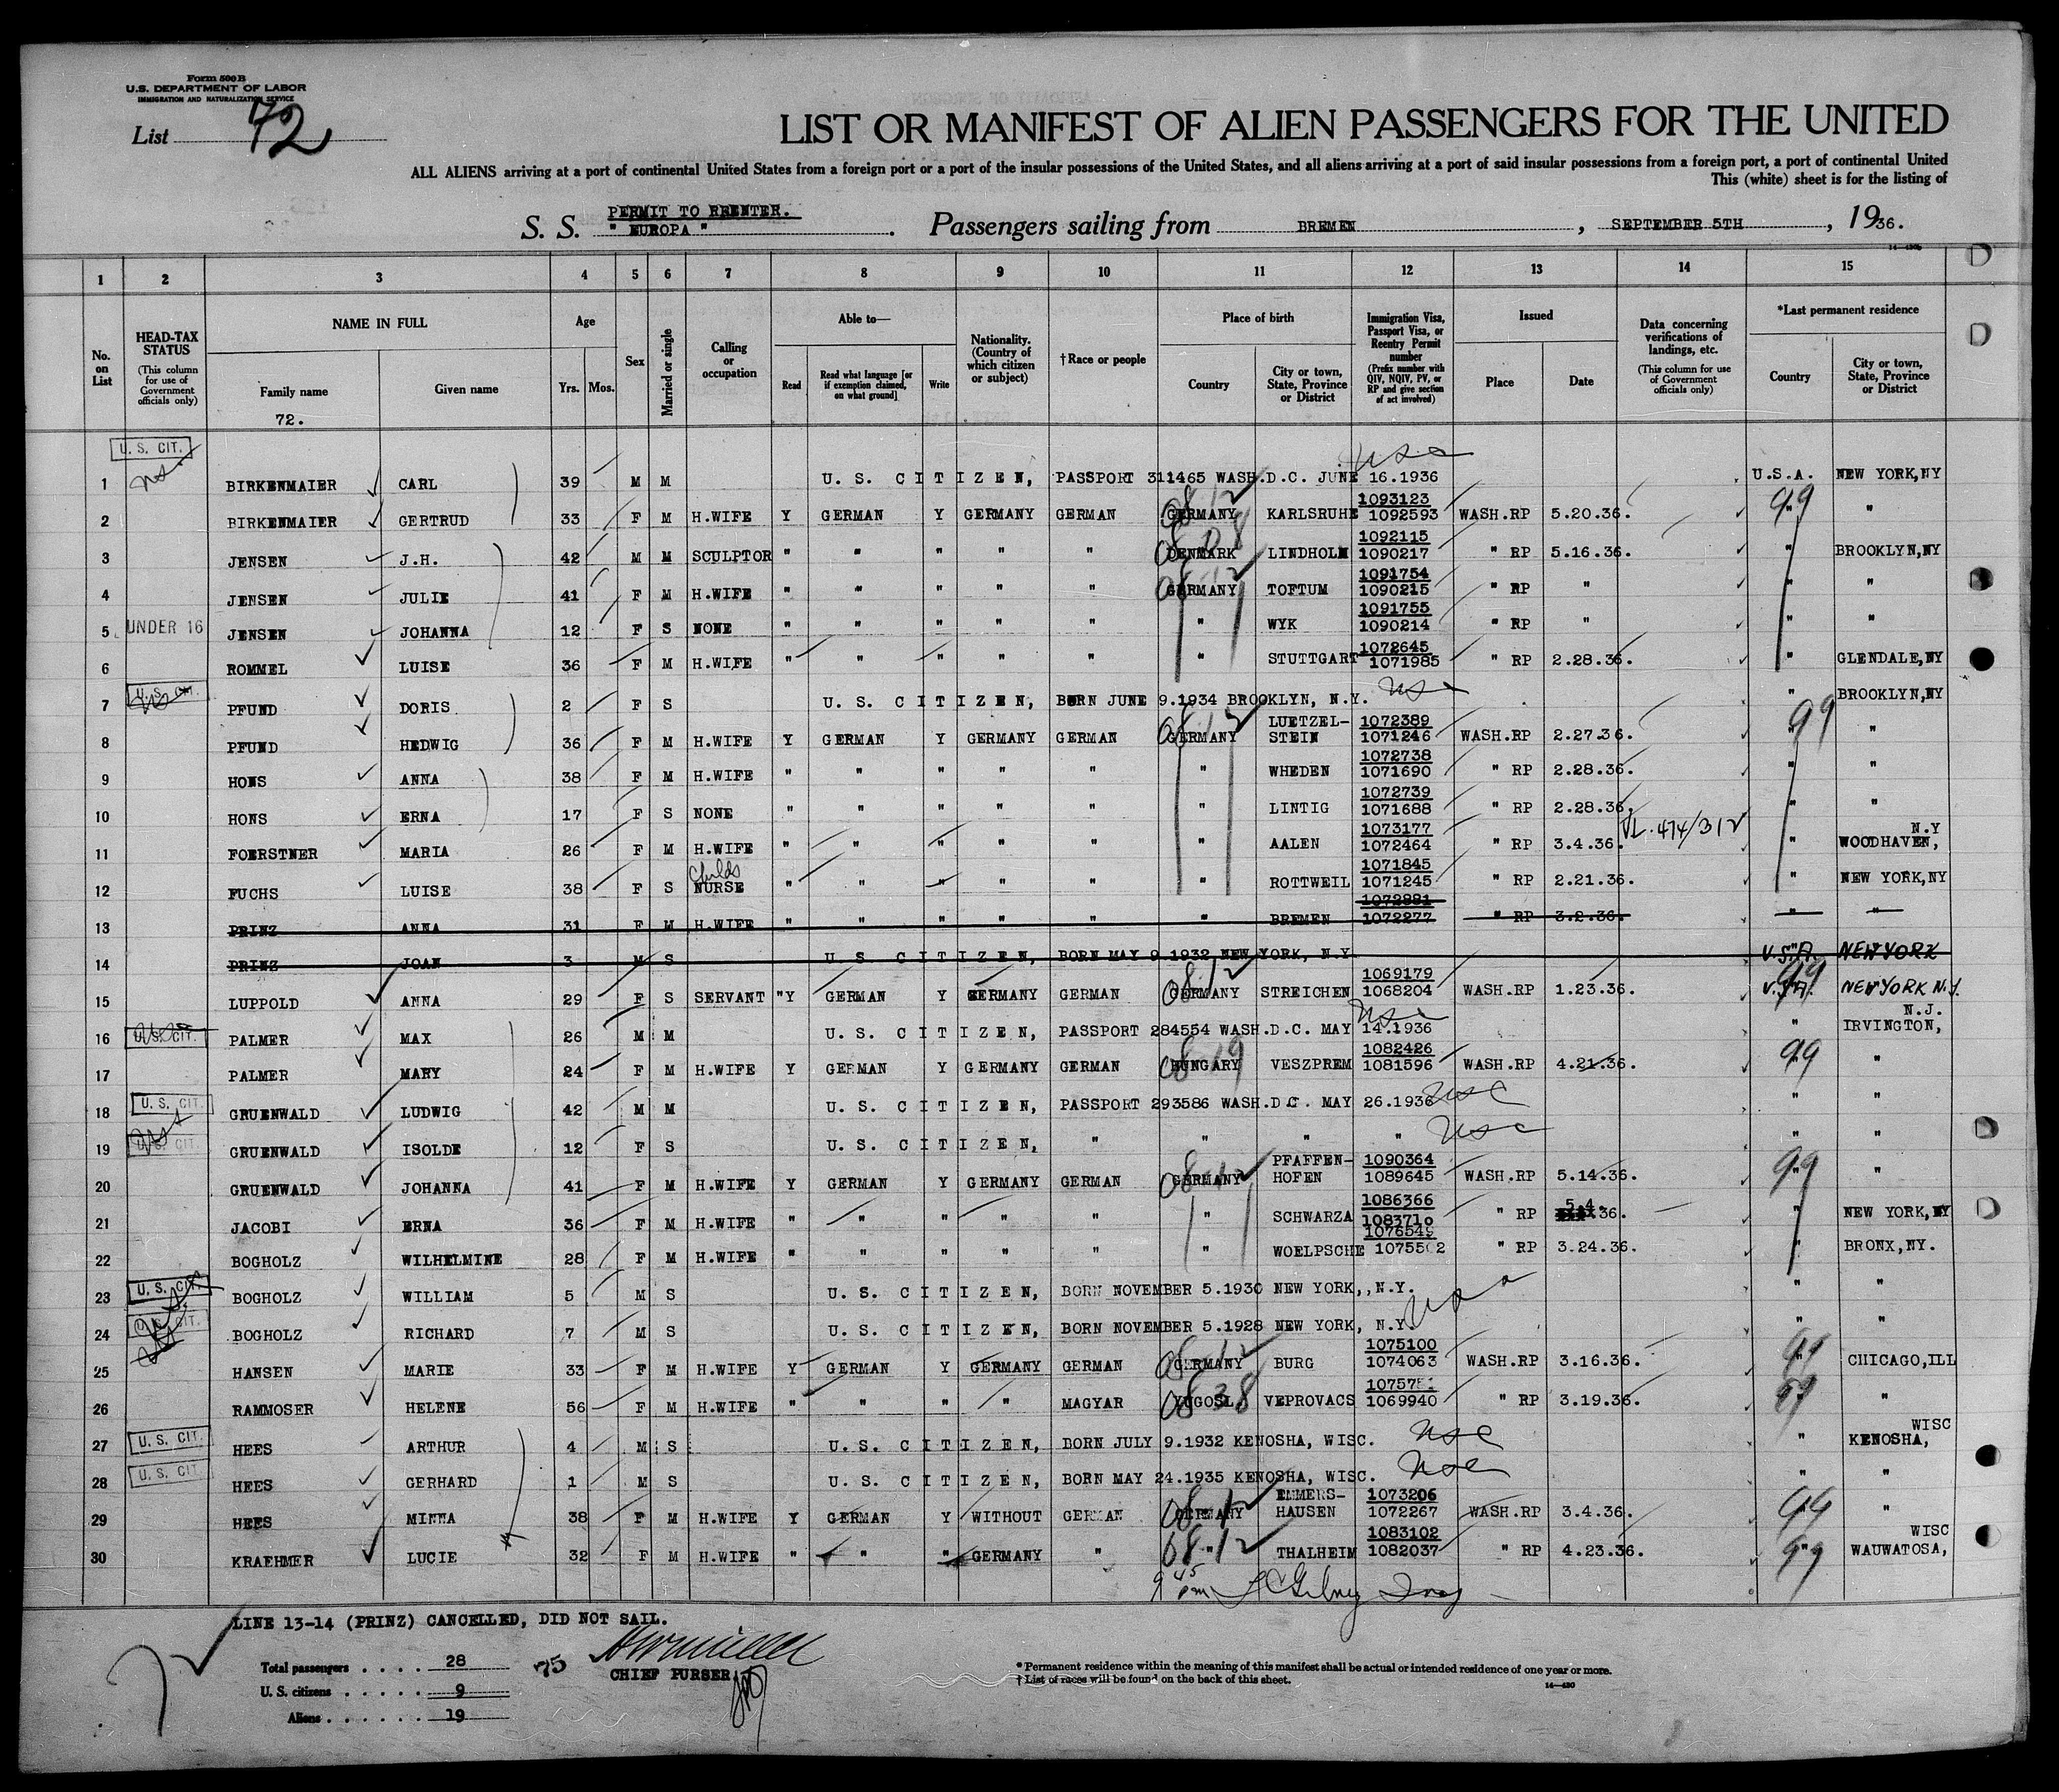 Form 500 B
U.S. DEPARTMENT OF LABOR
IMMIGRATION AND NATURALIZATION SERVICE
List 72
LIST OR MANIFEST OF ALIEN PASSENGERS FOR THE UNITED
ALL ALIENS arriving at a port of continental United States from a foreign port or a port of the insular possessions of the United States, and all aliens arriving at a port of said insular possessions from a foreign port, a port of continental United
This (white) sheet is for the listing of
PERMIT TO REENTER.
S. S. " EUROPA " . Passengers sailing from BREMEN , SEPTEMBER 5TH , 1936.
1 2 3 4 5 6 7 8 9 10 11 12 13 14 15
No. on List
HEAD-TAX STATUS (This column for use of Government officials only)
NAME IN FULL Family name Given name
72.
Age Yrs. Mos.
Sex
Married or single
Calling or occupation
Able to— Read Read what language [or if exemption claimed, on what ground] Write
Nationality. (Country of which citizen or subject)
†Race or people
Place of birth Country City or town, State, Province or District
Immigration Visa, Passport Visa, or Reentry Permit number (Prefix number with QIV, NQIV, PV, or RP and give section of act involved)
Issued Place Date
Data concerning verifications of landings, etc. (This column for use of Government officials only)
*Last permanent residence Country City or town, State, Province or District
U. S. CIT.
1 BIRKENMAIER CARL 39 M M U. S. CITIZEN, PASSPORT 311465 WASH.D.C. JUNE 16.1936 U.S.A. NEW YORK,NY
1093123
2 BIRKENMAIER GERTRUD 33 F M H.WIFE Y GERMAN Y GERMANY GERMAN GERMANY KARLSRUHE 1092593 WASH.RP 5.20.36. 99 "
1092115
3 JENSEN J.H. 42 M M SCULPTOR " " " " " DENMARK LINDHOLM 1090217 " RP 5.16.36. " BROOKLYN,NY
1091754
4 JENSEN JULIE 41 F M H.WIFE " " " " " GERMANY TOFTUM 1090215 " RP " " "
1091755
5 UNDER 16 JENSEN JOHANNA 12 F S NONE " " " " " " WYK 1090214 " RP " " "
1072645
6 ROMMEL LUISE 36 F M H.WIFE " " " " " " STUTTGART 1071985 " RP 2.28.36. " GLENDALE,NY
7 U. S. CIT. PFUND DORIS 2 F S U. S. CITIZEN, BORN JUNE 9.1934 BROOKLYN, N.Y. " BROOKLYN,NY
LUETZEL- 1072389
8 PFUND HEDWIG 36 F M H.WIFE Y GERMAN Y GERMANY GERMAN GERMANY STEIN 1071246 WASH.RP 2.27.36. 99 "
1072738
9 HONS ANNA 38 F M H.WIFE " " " " " " WHEDEN 1071690 " RP 2.28.36. " "
1072739
10 HONS ERNA 17 F S NONE " " " " " " LINTIG 1071688 " RP 2.28.36. " "
1073177 VL.474/312 N.Y
11 FOERSTNER MARIA 26 F M H.WIFE " " " " " " AALEN 1072464 " RP 3.4.36. " WOODHAVEN,
Childs 1071845
12 FUCHS LUISE 38 F S NURSE " " " " " " ROTTWEIL 1071245 " RP 2.21.36. " NEW YORK,NY
1072881
13 PRINZ ANNA 31 F M H.WIFE " " " " " " BREMEN 1072277 " RP 3.2.36. " "
14 PRINZ JOAN 3 M S U. S. CITIZEN, BORN MAY 9.1932 NEW YORK, N.Y. U.S.A. NEW YORK
1069179
15 LUPPOLD ANNA 29 F S SERVANT "Y GERMAN Y GERMANY GERMAN GERMANY STREICHEN 1068204 WASH.RP 1.23.36. U.S.A. NEW YORK N.Y.
N.J.
16 U. S. CIT. PALMER MAX 26 M M U. S. CITIZEN, PASSPORT 284554 WASH.D.C. MAY 14.1936 " IRVINGTON,
1082426
17 PALMER MARY 24 F M H.WIFE Y GERMAN Y GERMANY GERMAN HUNGARY VESZPREM 1081596 WASH.RP 4.21.36. 99 "
18 U. S. CIT. GRUENWALD LUDWIG 42 M M U. S. CITIZEN, PASSPORT 293586 WASH.D.C. MAY 26.1936 " "
19 U. S. CIT. GRUENWALD ISOLDE 12 F S U. S. CITIZEN, " " " " " "
PFAFFEN- 1090364
20 GRUENWALD JOHANNA 41 F M H.WIFE Y GERMAN Y GERMANY GERMAN GERMANY HOFEN 1089645 WASH.RP 5.14.36. 99 "
1086366 5.4.
21 JACOBI ERNA 36 F M H.WIFE " " " " " " SCHWARZA 1083710 " RP 36. " NEW YORK,NY
1076549
22 BOGHOLZ WILHELMINE 28 F M H.WIFE " " " " " " WOELPSCHE " RP 3.24.36. " BRONX,NY.
23 U. S. CIT. BOGHOLZ WILLIAM 5 M S U. S. CITIZEN, BORN NOVEMBER 5.1930 NEW YORK,,N.Y. " "
24 U. S. CIT. BOGHOLZ RICHARD 7 M S U. S. CITIZEN, BORN NOVEMBER 5.1928 NEW YORK, N.Y. " "
1075100
25 HANSEN MARIE 33 F M H.WIFE Y GERMAN Y GERMANY GERMAN GERMANY BURG 1074063 WASH.RP 3.16.36. 99 CHICAGO,ILL
26 RAMMOSER HELENE 56 F M H.WIFE " " " " MAGYAR YUGOSL. VEPROVACS 1069940 " RP 3.19.36. 99 "
WISC
27 U. S. CIT. HEES ARTHUR 4 M S U. S. CITIZEN, BORN JULY 9.1932 KENOSHA, WISC. " KENOSHA,
28 U. S. CIT. HEES GERHARD 1 M S U. S. CITIZEN, BORN MAY 24.1935 KENOSHA, WISC. " "
EMMERS- 1073206
29 HEES MINNA 38 F M H.WIFE Y GERMAN Y WITHOUT GERMAN GERMANY HAUSEN 1072267 WASH.RP 3.4.36. 99 "
1083102 WISC
30 KRAEHMER LUCIE 32 F M H.WIFE " " " GERMANY " " THALHEIM 1082037 " RP 4.23.36. 99 WAUWATOSA,
9 45 pm
LINE 13-14 (PRINZ) CANCELLED, DID NOT SAIL.
Total passengers . . . . 28
75
CHIEF PURSER
U. S. citizens . . . . . 9
Aliens . . . . . . 19
*Permanent residence within the meaning of this manifest shall be actual or intended residence of one year or more.
† List of races will be found on the back of this sheet.
14—430